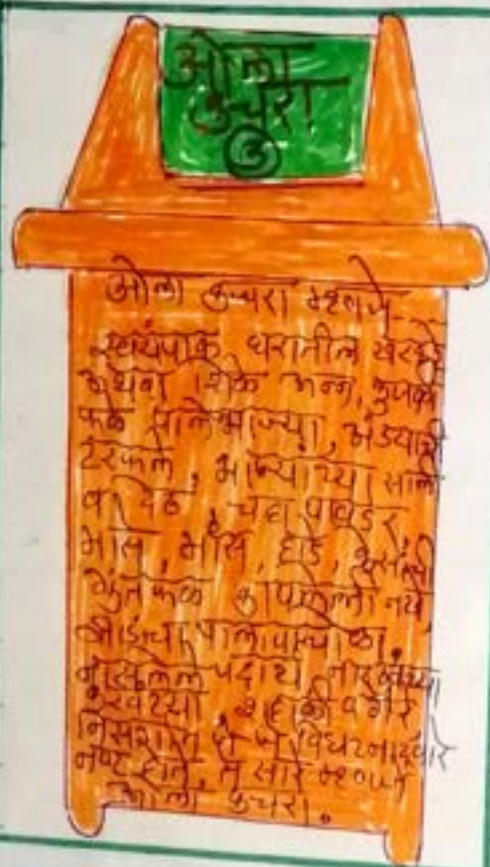 ओला
कचरा
ओला कचरा म्हणजे----
स्वयंपाक घरातील खरकटे
अथवा शिळे अन्न, कुजकी
फळे पालेभाज्या, अंड्याची
टरफले, भाज्यांच्या साली
व देठ, चहा पावडर
मासे, मांस, हाडे, केसांची
गुंतवळ कापलेली नखे,
झाडांचा पालापाचोळा,
नासलेले पदार्थ नारळाच्या
करवंट्या शहाळी वगैरे
निसर्गात हे जे विघटनाद्वारे
नष्ट होते, ते सारे म्हणजे
ओला कचरा.